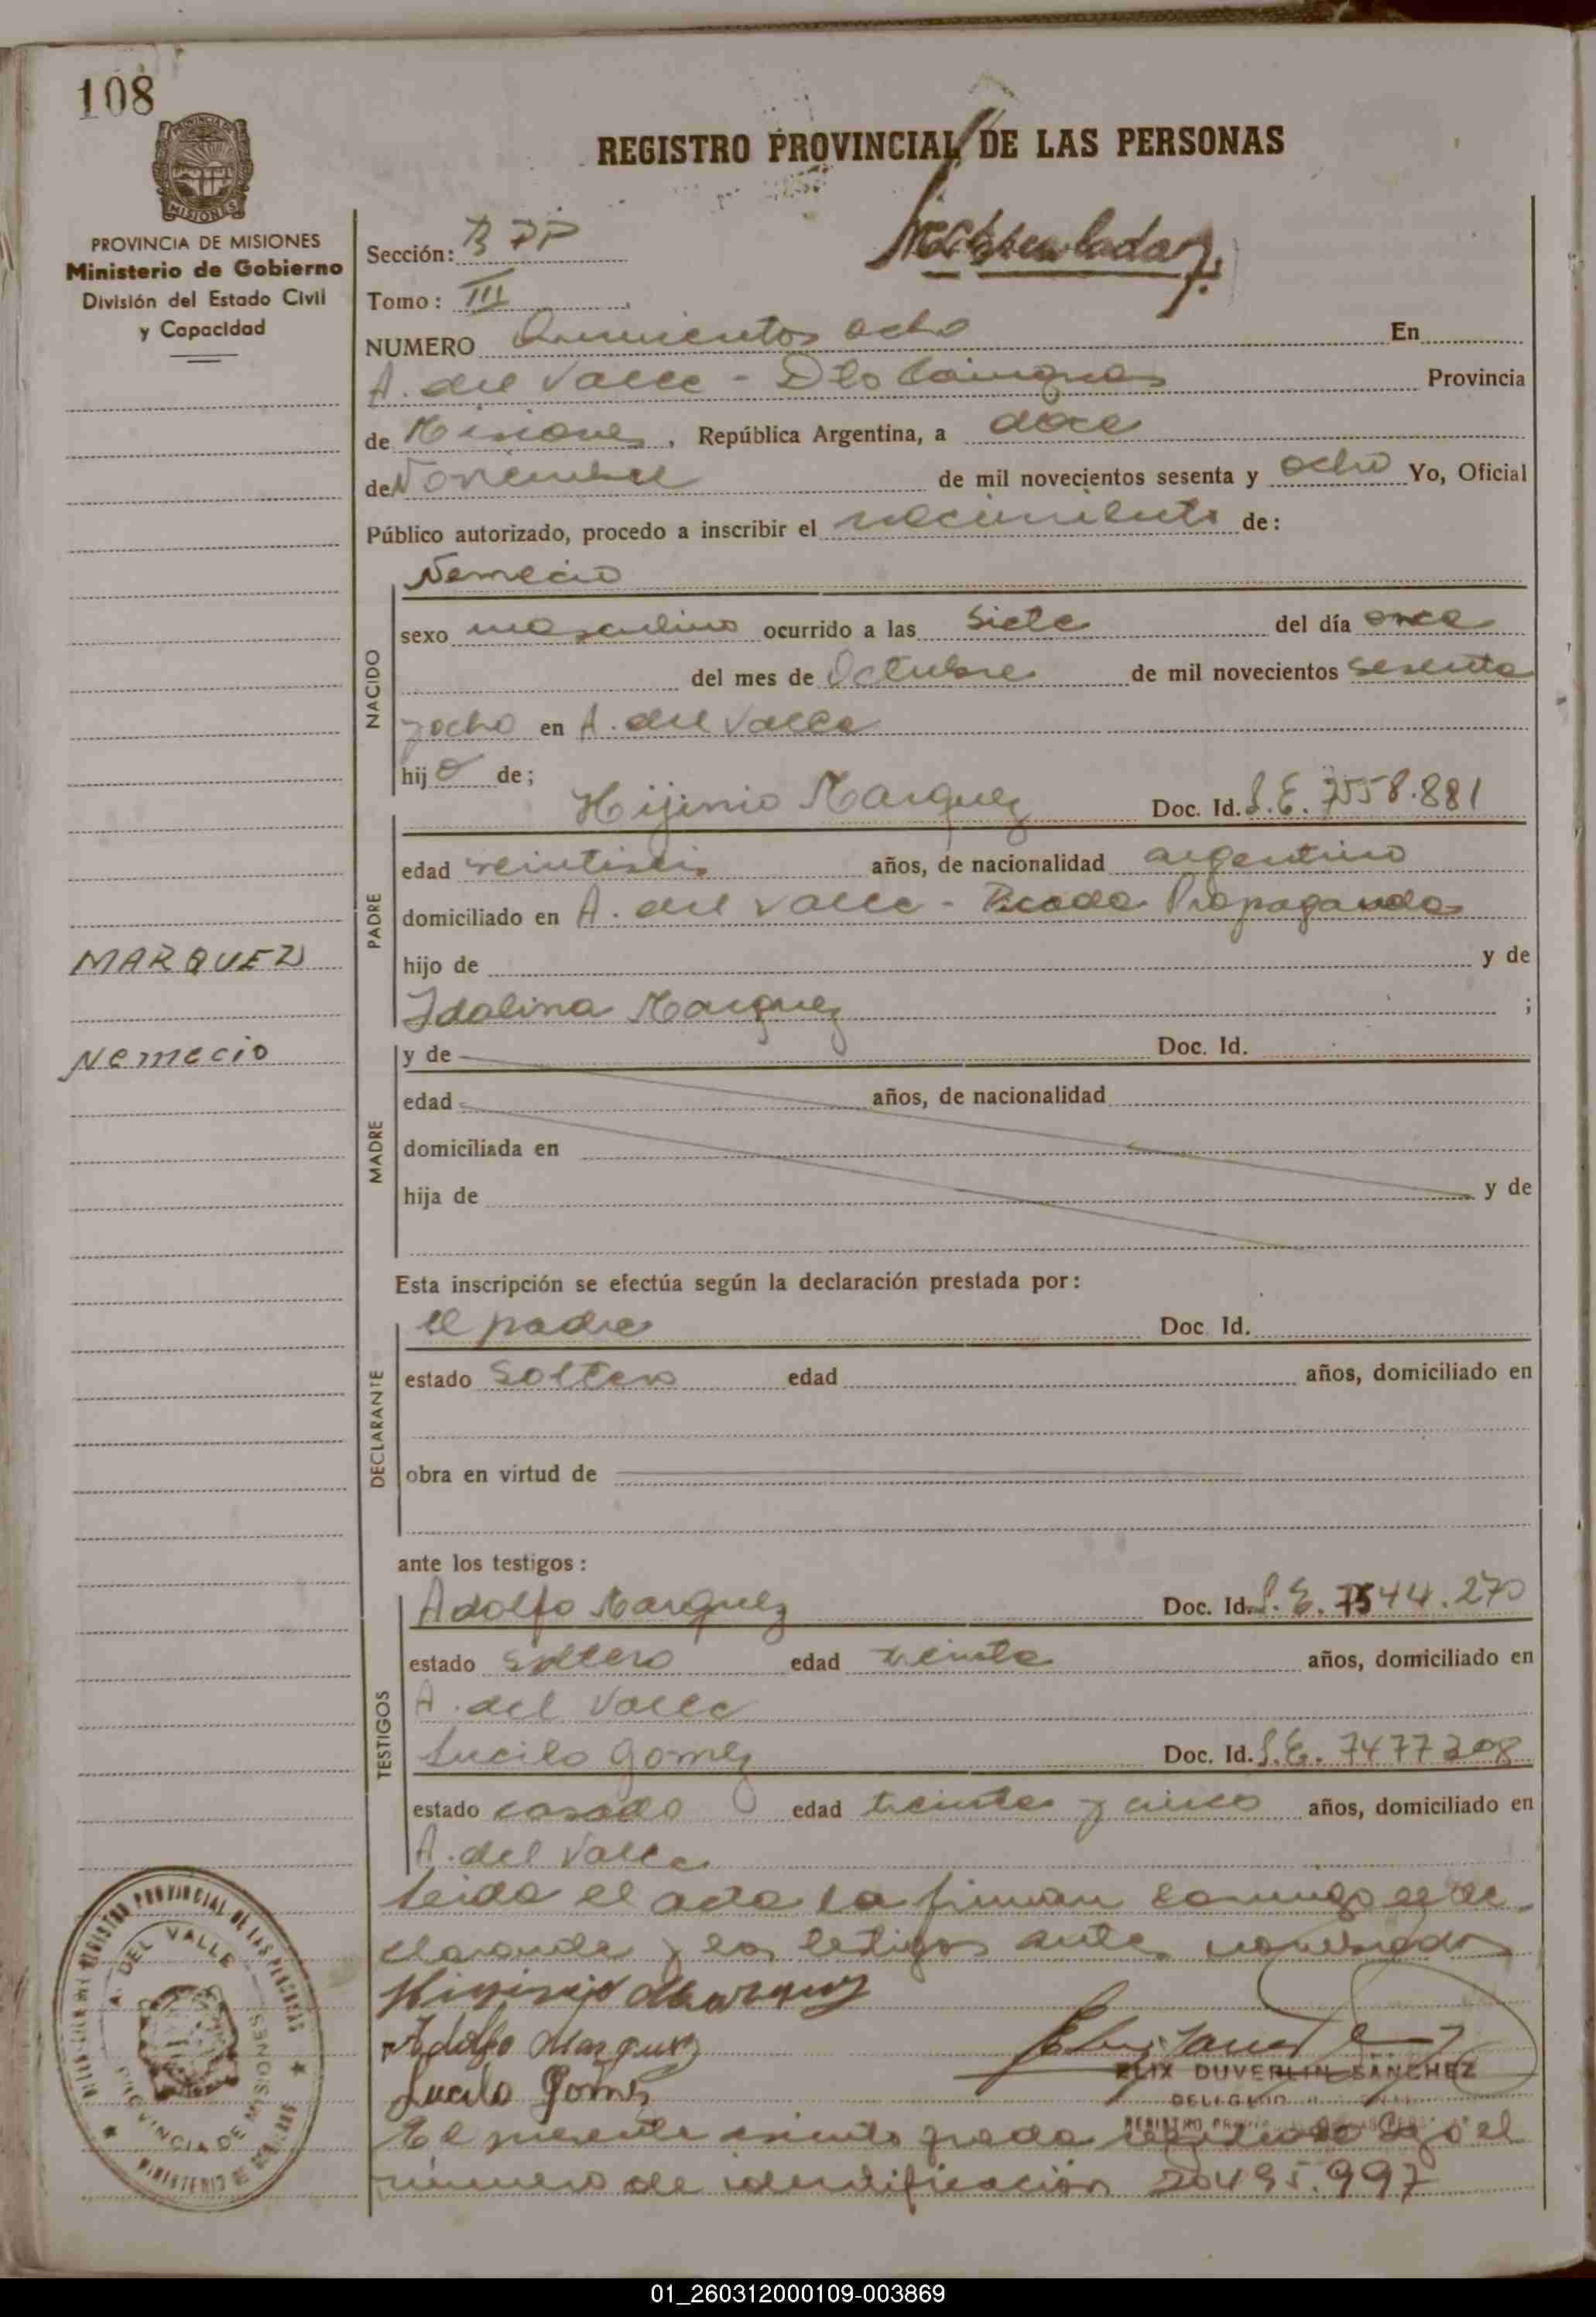 108
PROVINCIA DE
MISIONES
REGISTRO PROVINCIAL DE LAS PERSONAS
PROVINCIA DE MISIONES
Ministerio de Gobierno
División del Estado Civil
y Capacidad
Sección:
Tomo: III
NUMERO Quinientos ocho En
A. del Valle - Dto Cainguas Provincia
de Misiones, República Argentina, a doce
de Noviembre de mil novecientos sesenta y ocho Yo, Oficial
Público autorizado, procedo a inscribir el nacimiento de:
NACIDO
Nemecio
sexo masculino ocurrido a las siete del día once
del mes de Octubre de mil novecientos sesenta
y ocho en A. del Valle
hijo de;
PADRE
Hijinio Marquez Doc. Id. L.E. 7558.881
edad veintiseis años, de nacionalidad argentino
domiciliado en A. del Valle - Picada Propaganda
MARQUEZ
hijo de y de
Idalina Marquez ;
Nemecio
MADRE
y de Doc. Id.
edad años, de nacionalidad
domiciliada en
hija de y de
Esta inscripción se efectúa según la declaración prestada por:
DECLARANTE
el padre Doc. Id.
estado soltero edad años, domiciliado en
obra en virtud de
ante los testigos:
TESTIGOS
Adolfo Marquez Doc. Id. L.E. 7544.270
estado soltero edad treinta años, domiciliado en
A. del Valle
Lucilo Gomez Doc. Id. L.E. 7477308
estado casado edad treinta y cinco años, domiciliado en
A. del Valle
Leida el acta la firman conmigo el de-
clarante y los testigos ante nombrados
Hijinio Marquez
Adolfo Marquez
Lucilo Gomez
ELIX DUVERLIN SANCHEZ
El presente asiento queda bajo el
número de identificación 20495.997
REGISTRO PROVINCIAL DE LAS PERSONAS
A. DEL VALLE
PROVINCIA DE MISIONES
01_260312000109-003869